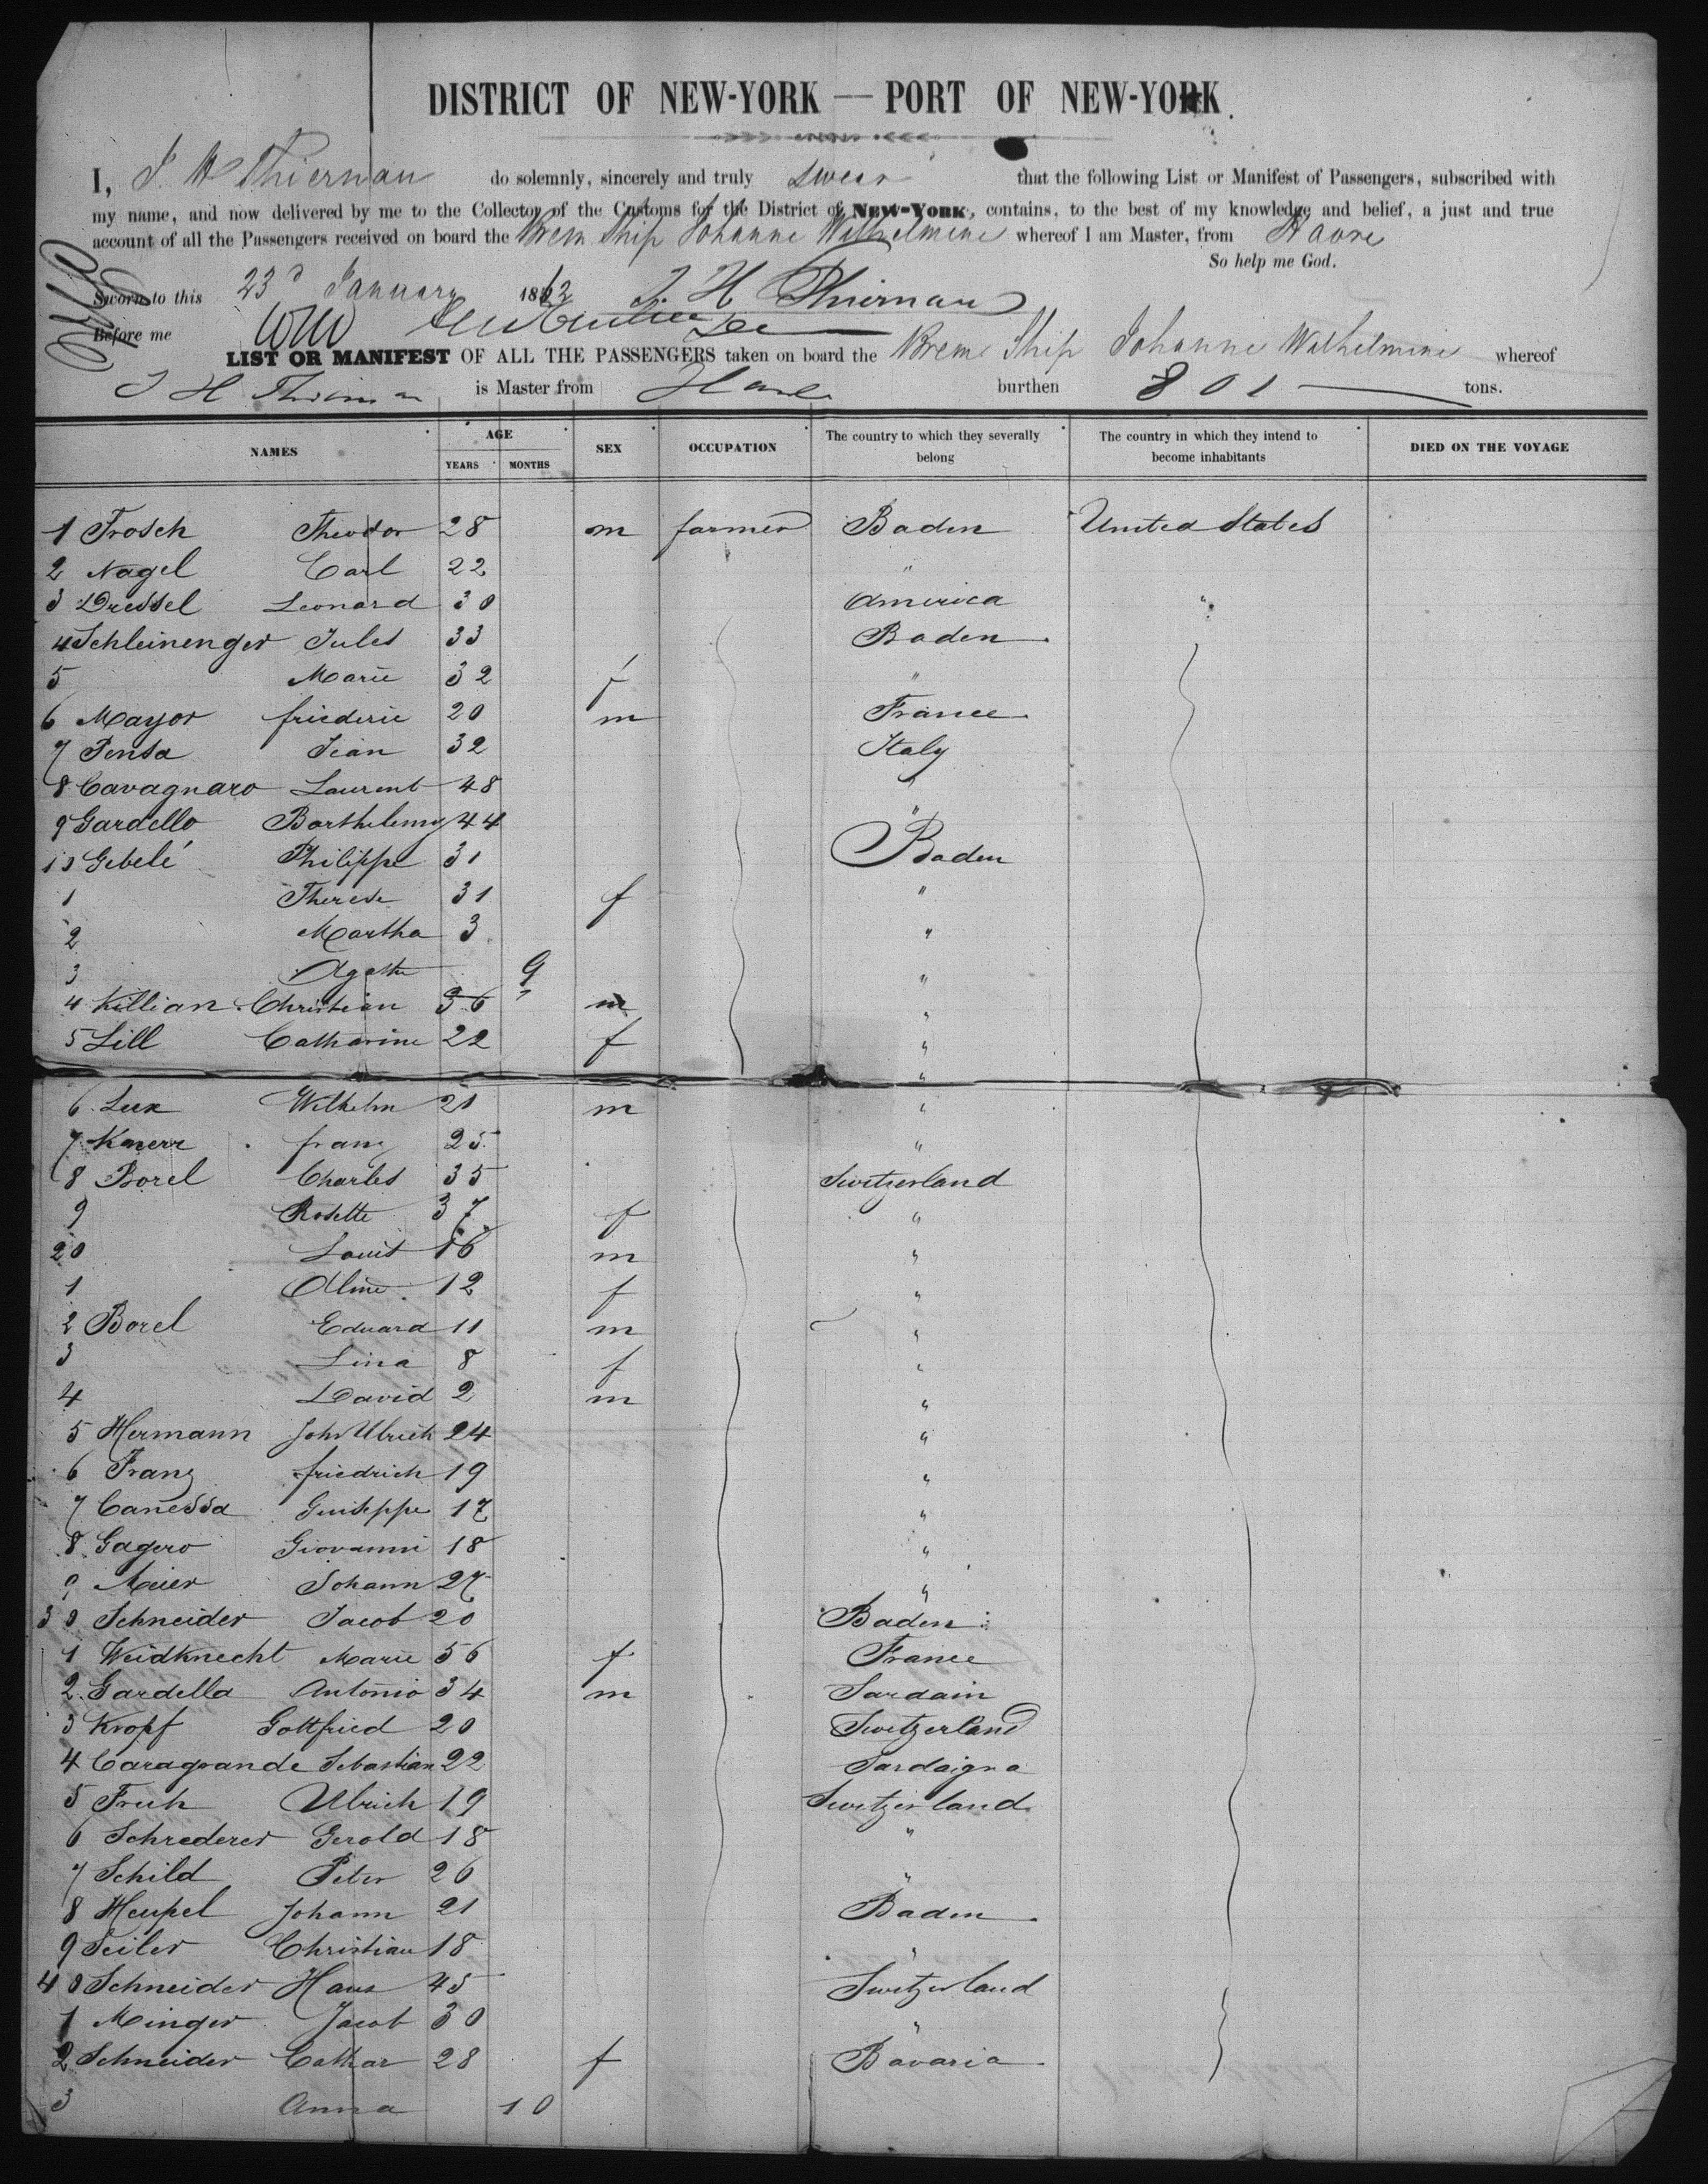 DISTRICT OF NEW-YORK — PORT OF NEW-YORK
I, J. H Thierman do solemnly, sincerely and truly swear that the following List or Manifest of Passengers, subscribed with
my name, and now delivered by me to the Collector of the Customs for the District of NEW-YORK, contains, to the best of my knowledge and belief, a just and true
account of all the Passengers received on board the Brem Ship Johanne Wilhelmine whereof I am Master, from Havre
So help me God.
Sworn to this 23d January 1862 J. H Thierman
Before me
LIST OR MANIFEST OF ALL THE PASSENGERS taken on board the Brem Ship Johanne Wilhelmine whereof
J H Thierman is Master from Havre burthen 801 tons.
NAMES AGE YEARS MONTHS SEX OCCUPATION The country to which they severally belong The country in which they intend to become inhabitants DIED ON THE VOYAGE
1 Frosch Theodor 28 m farmer Baden United States
2 Nagel Carl 22 "
3 Dressel Leonard 30 America "
4 Schleinenger Jules 33 Baden
5 Marie 32 f "
6 Mayor friederic 20 m France
7 Pensa Jean 32 Italy
8 Cavagnaro Laurent 48 "
9 Gardello Barthelemy 44 "
10 Gebelé Philippe 31 Baden
1 Therese 31 f "
2 Martha 3 "
3 Agathe 9 "
4 Killian Christian 36 m "
5 Lill Catharine 22 f "
6 Lux Wilhelm 21 m "
7 Knerr franz 25 "
8 Borel Charles 35 Switzerland
9 Rosette 37 f "
20 Louis 16 m "
1 Aline 12 f "
2 Borel Eduard 11 m "
3 Lina 8 f "
4 David 2 m "
5 Hermann Joh Ulrich 24 "
6 Franz friedrich 19 "
7 Canessa Guiseppe 17 "
8 Gagero Giovanni 18 "
9 Meier Johann 27 "
30 Schneider Jacob 20 Baden
1 Weidknecht Marie 56 f France
2 Gardella Antonio 34 m Sardain
3 Kropf Gottfried 20 Switzerland
4 Caragrande Sebastian 22 Sardaigna
5 Früh Ulrich 19 Switzerland
6 Schrederer Gerold 18 "
7 Schild Peter 26 "
8 Heupel Johann 21 Baden
9 Seiler Christian 18 "
40 Schneider Hans 45 Switzerland
1 Minger Jacob 30 "
2 Schneider Cathar 28 f Bavaria
3 Anna 10